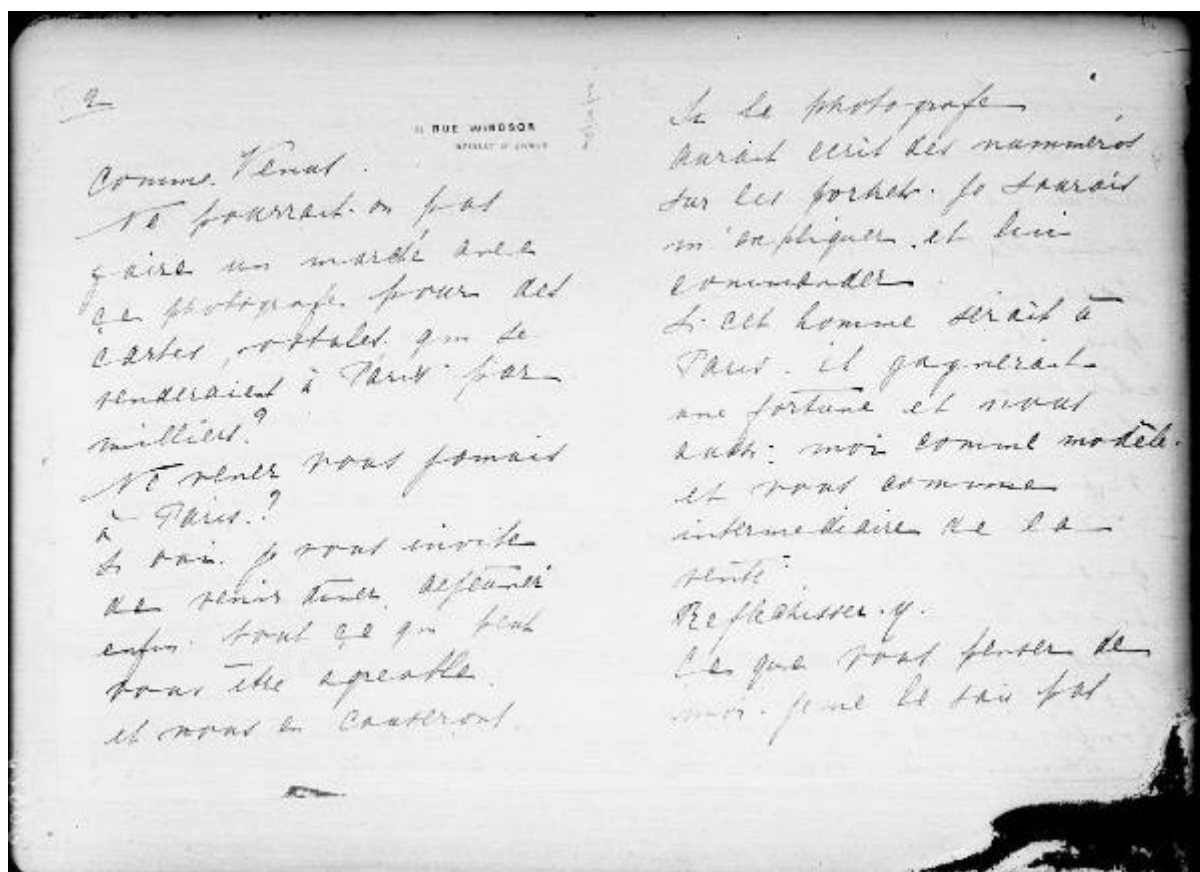 2
11 RUE WINDSOR
comme Venus.
Ne pourrait-on pas
faire un marché avec
ce photografe pour des
cartes postales qui se
venderaient à Paris par
milliers?
Ne venez vous jamais
à Paris?
Si oui. je vous invite
de venir diner, dejeuner
enfin tout ce qui peut
vous être agreable.
et nous en causerons.
Si le photografe
aurait ecrit des nummeros
sur les poches. je saurais
m'expliquer et lui
commander
Si cet homme serait à
Paris. il gagnerait
une fortune et nous
aussi. moi comme modèle.
et vous comme
intermediaire de la
vente.
Reflechissez-y.
Ce que vous penser de
moi. je ne le sais pas